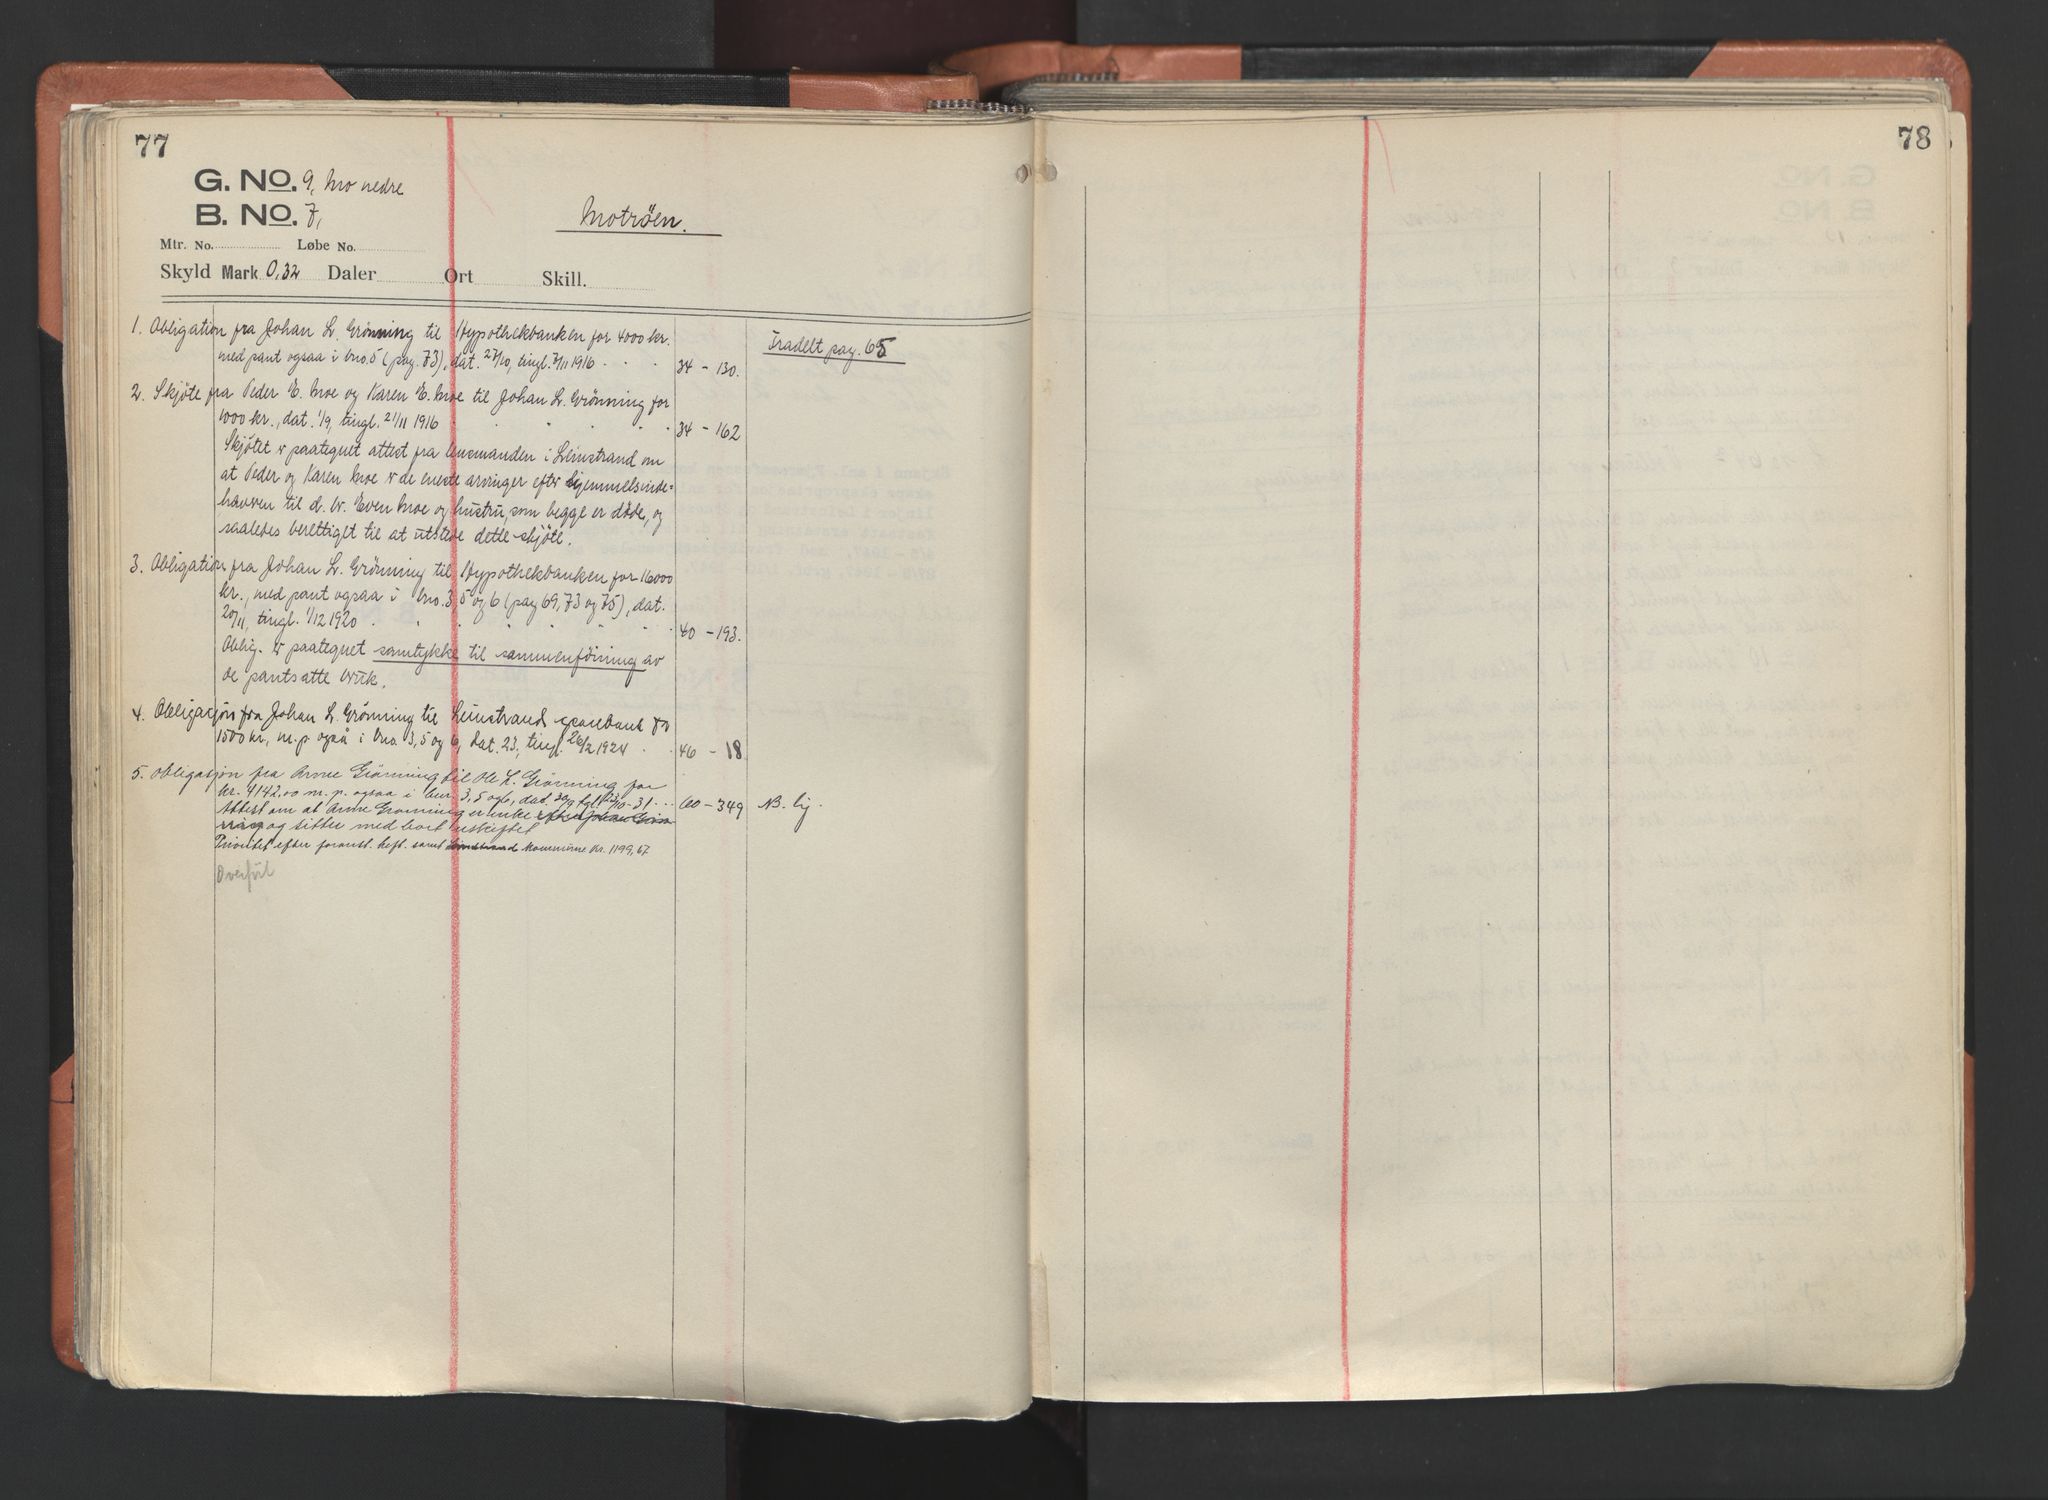 77
G. No. 9, Mo nedre
B. No. 7,
Motrøen.
Mtr. No. Løbe No.
Skyld Mark 0,32 Daler Ort Skill.
1. Obligation fra Johan L. Grönning til Hypothekbanken for 4000 kr.
med pant ogsaa i bno. 5 (pag. 73), dat. 27/10, tingl. 7/11 1916 34 - 130.
Fradelt pag. 65
2. Skjöte fra Peder E. Moe og Karen E. Moe til Johan L. Grönning for
1000 kr., dat. 1/9, tingl. 21/11 1916 34 - 162
Skjötet er paategnet attest fra lensmanden i Leinstrand om
at Peder og Karen Moe er de eneste arvinger efter hjemmelsinde=
haveren til d. br. Even Moe og hustru, som begge er döde, og
saaledes berettiget til at utstede dette skjöte.
3. Obligation fra Johan L. Grönning til Hypothekbanken for 16000
kr., med pant ogsaa i bno. 3, 5 og 6 (pag 69, 73 og 75), dat.
20/11, tingl. 1/12 1920 40 - 193.
Oblig. er paategnet samtykke til sammenföining av
de pantsatte bruk.
4. Obligasjon fra Johan L. Grönning til Leinstrand sparebank for
1500 kr., m. p. også i bno. 3, 5 og 6, dat. 23, tingl. 26/2 1924 46 - 18
5. Obligasjon fra Anne Grönning til Ole L. Grönning for
kr. 4142,00 m. p. ogsaa i bnr. 3, 5 og 6, dat. 30/9 tgl. 23/10 - 31 60 - 349 NB. lij.
Attest om at Anne Grønning er enke efter Johan Grön
ning og sitter med bort uskiftet
Prioritet efter foranst. heft. samt Leinstrand kommune kr. 1199,67
Overført
78